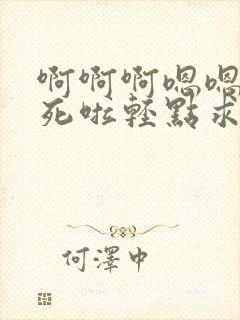 啊啊啊嗯嗯
死啦轻點求
何澤中